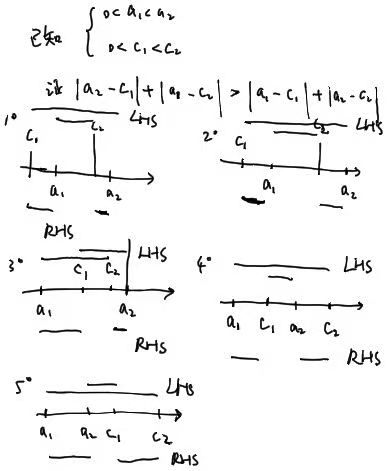 已知 { 0<a₁<a₂
0<c₁<c₂
证 |a₂-c₁|+|a₁-c₂| > |a₁-c₁|+|a₂-c₂|
1° LHS
c₁ c₂
a₁ a₂
RHS
2° LHS
c₁ c₂
a₁ a₂
3° LHS
c₁ c₂
a₁ a₂
RHS
4° LHS
a₁ c₁ a₂ c₂
RHS
5° LHS
a₁ a₂ c₁ c₂
RHS